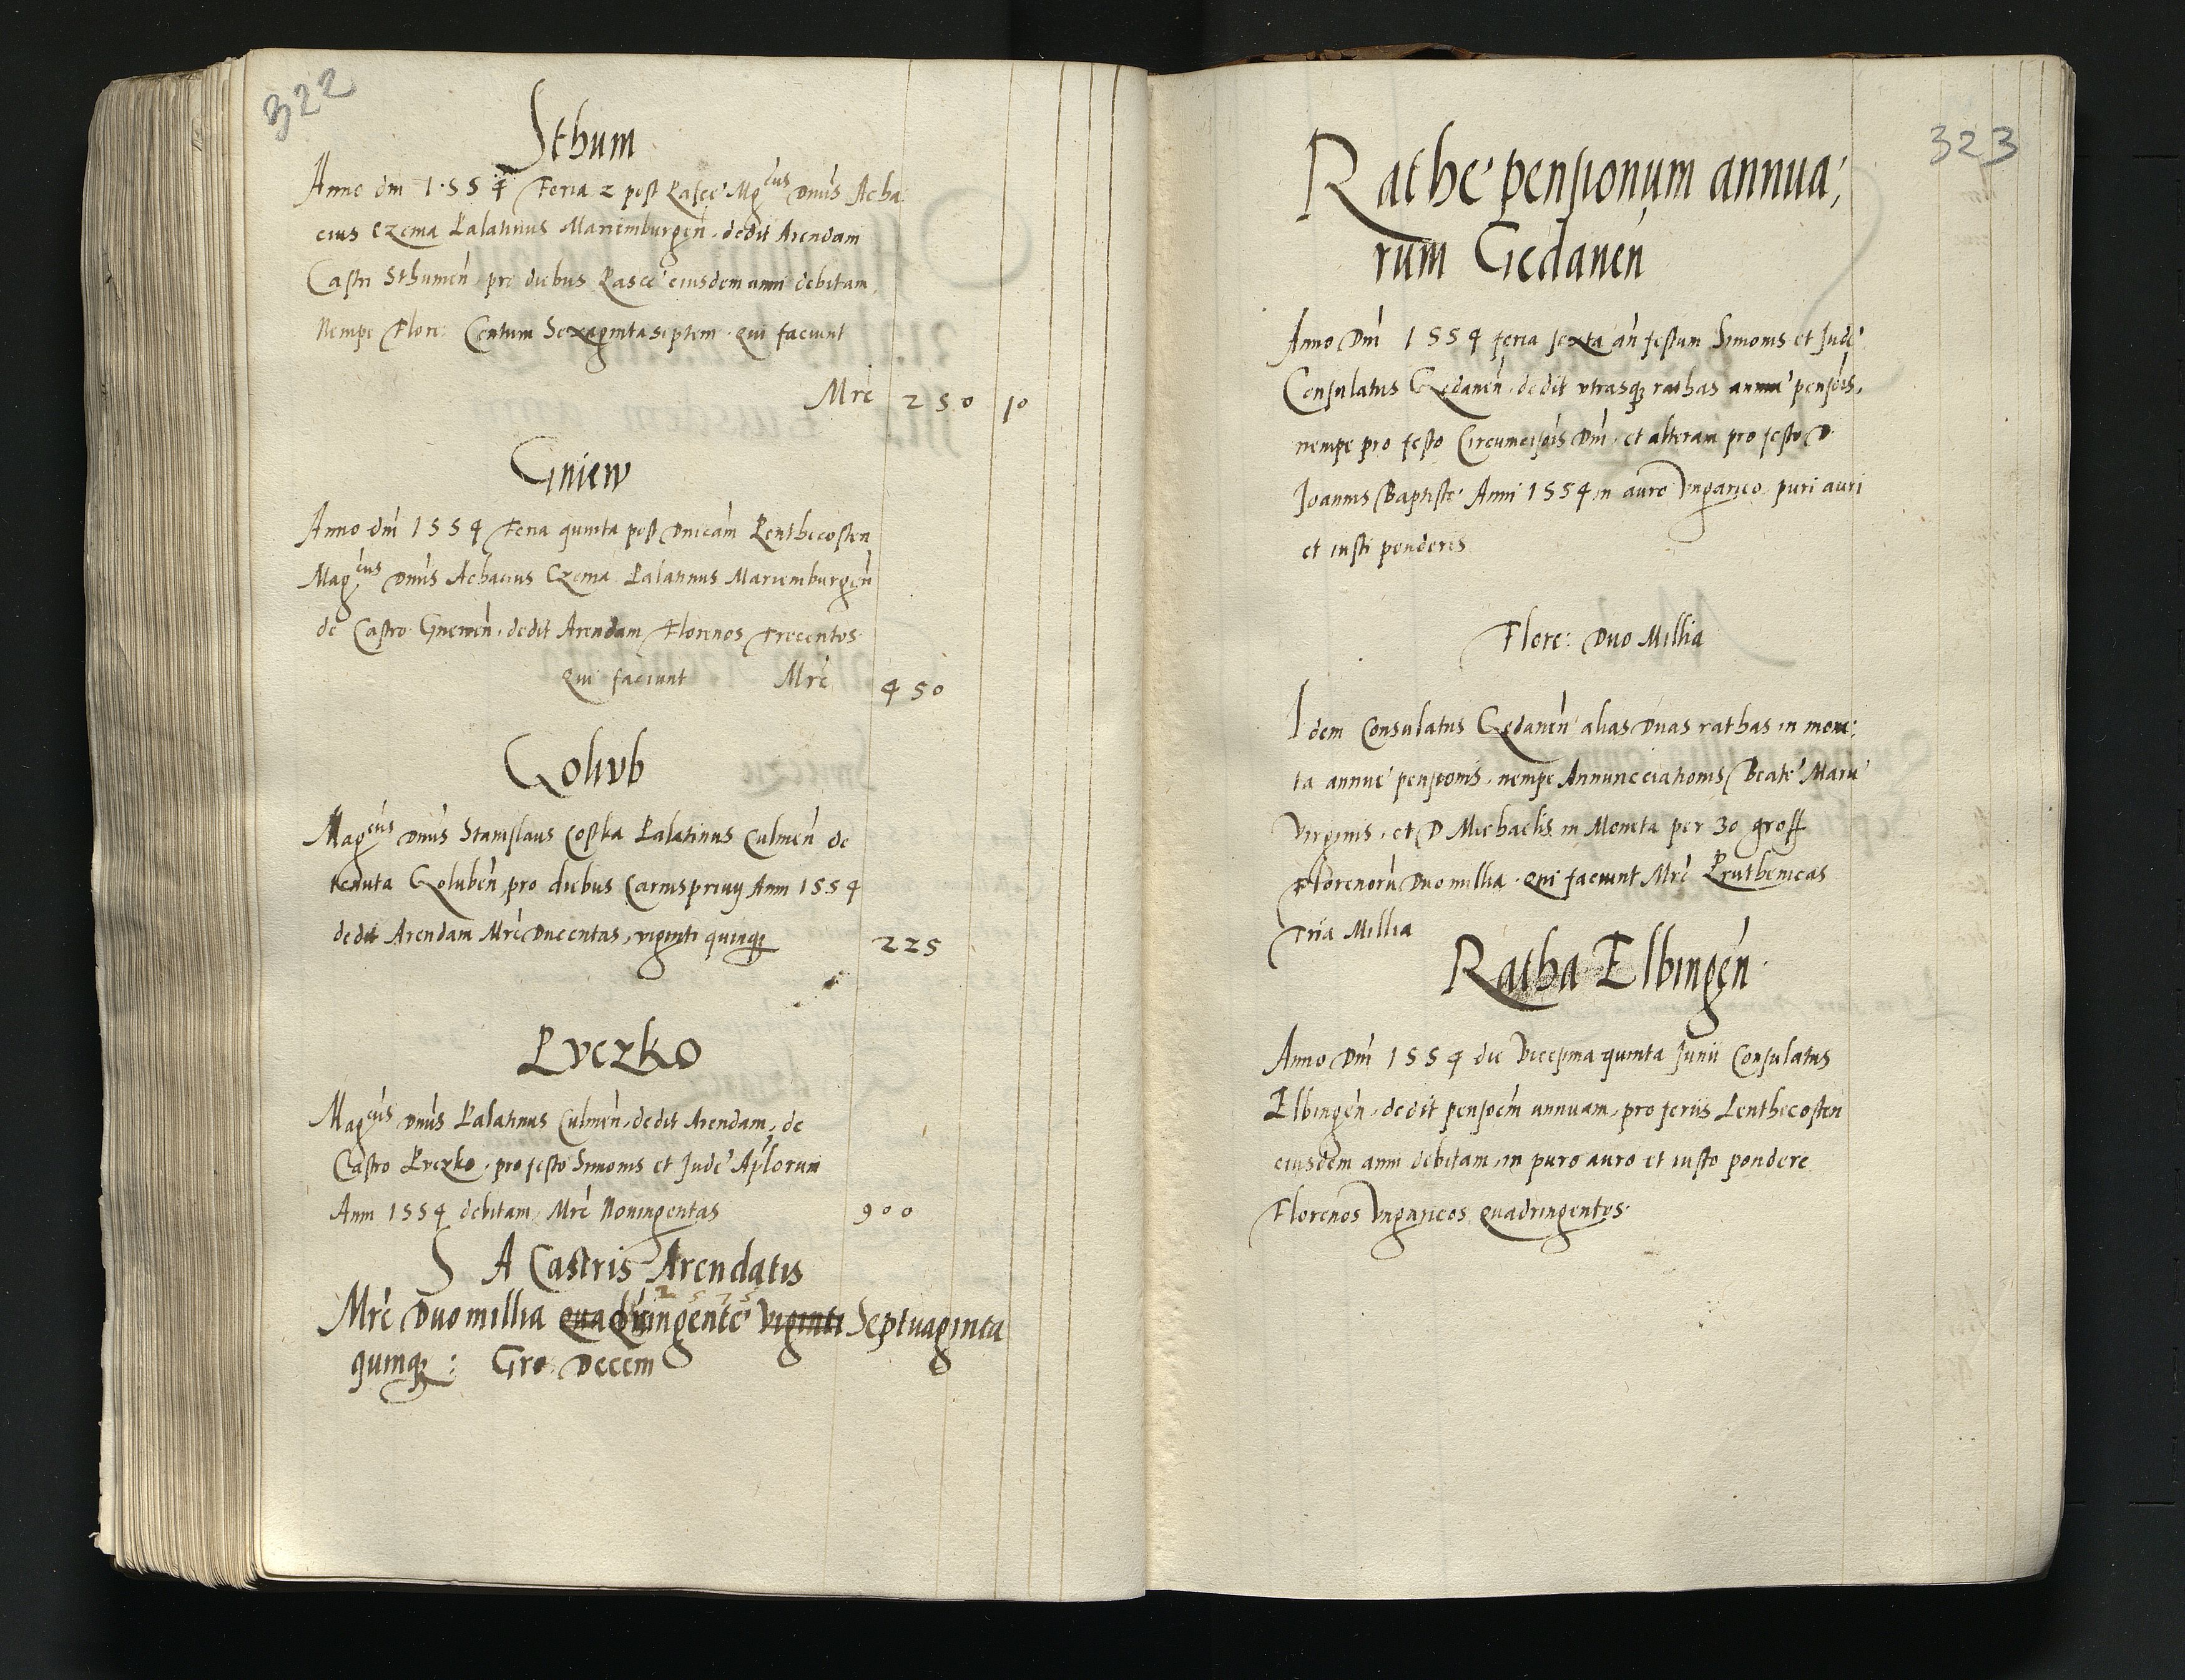 322
Sthum
Anno dm 1554 Feria 2 post Pasce Mgcus Dnus Acha
cius Czema Palatinus Mariemburgen. dedit Arendam
Castri Sthumen pro diebus Pasce eiusdem anni debitam,
Nempe Flore: Centum Sexaginta septem. Qui faciunt
Mrc 250 10
Gniew
Anno dm 1554 Feria quinta post Dnicam Penthecosten
Magcus Dnus Achacius Czema Palatinus Mariemburgen
de Castro Gnewen. dedit Arendam Florenos Trecentos
Qui faciunt Mrc 450
Golivb
Magcus Dnus Stanislaus Costka Palatinus Culmen de
tenuta Goluben, pro diebus Carnisprivij Anni 1554
dedit Arendam Mrc Ducentas, viginti quinq; 225
Pvczko
Magcus Dnus Palatinus Culmen, dedit Arendam, de
Castro Pvczko, pro festo Simonis et Jude Aplorum
Anni 1554 debitam, Mrc Noningentas 900
A Castris Arendatis
Mrc Duo millia quadringente viginti Septuaginta
quinq; : Gro. Decem
323
Rathe pensionum annua,
rum Gedanen
Anno Dm 1554 feria sexta an festum Simonis et Jude
Consulatus Gedanen. dedit utrasq; rathas annue pensois,
nempe pro festo Circumcisois Dm, et alteram pro festo D
Joannis Baptiste Anni 1554 in auro Ungarico puri auri
et iusti ponderis
Flore: Duo Millia
Idem Consulatus Gedanen alias Duas rathas in mone:
ta annue pensionis, nempe Annuncciationis Beate Marie
Virginis, et D Michaelis in Moneta per 30 gross
Florenoru Duo millia. Qui faciunt Mrc Pruthenicas
Tria Millia
Ratha Elbingen
Anno Dm 1554 die Vicesima quinta Junii Consulatus
Elbingen. dedit pensoem annuam, pro feriis Penthecosten
eiusdem anni debitam, in puro auro et iusto pondere
Florenos Ungaricos Quadringentos